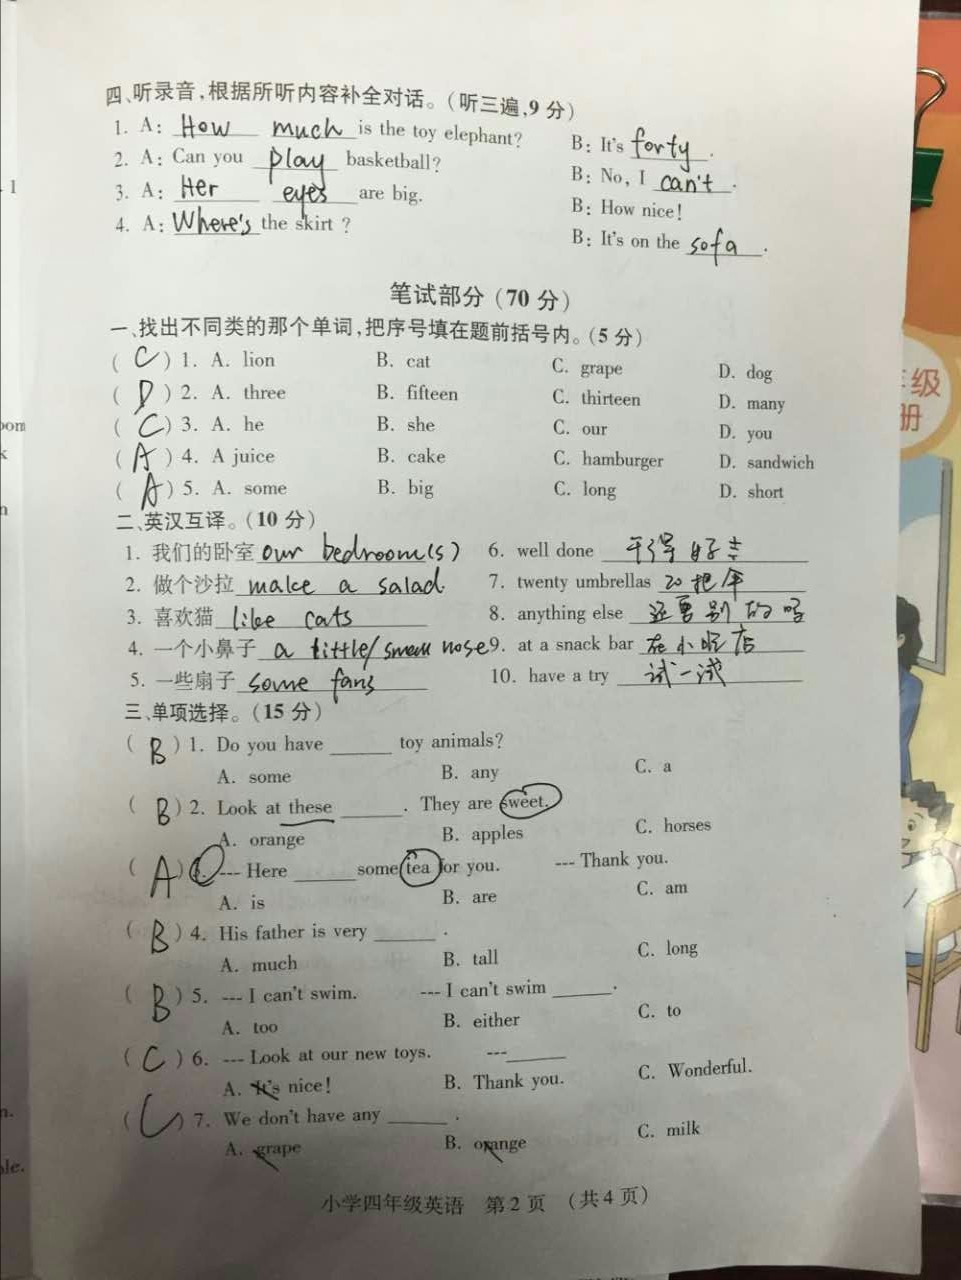 四、听录音,根据所听内容补全对话。(听三遍,9分)
1. A: How much is the toy elephant? B: It's forty.
2. A: Can you play basketball? B: No, I can't.
3. A: Her eyes are big. B: How nice!
4. A: Where's the skirt ? B: It's on the sofa.
笔试部分(70分)
一、找出不同类的那个单词,把序号填在题前括号内。(5分)
( C ) 1. A. lion B. cat C. grape D. dog
( D ) 2. A. three B. fifteen C. thirteen D. many
( C ) 3. A. he B. she C. our D. you
( A ) 4. A juice B. cake C. hamburger D. sandwich
( A ) 5. A. some B. big C. long D. short
二、英汉互译。(10分)
1. 我们的卧室 our bedroom(s) 6. well done 干得好
2. 做个沙拉 make a salad. 7. twenty umbrellas 20把伞
3. 喜欢猫 like cats 8. anything else 还要别的吗
4. 一个小鼻子 a little/small nose 9. at a snack bar 在小吃店
5. 一些扇子 some fans 10. have a try 试一试
三、单项选择。(15分)
( B ) 1. Do you have ______ toy animals?
A. some B. any C. a
( B ) 2. Look at these ______. They are sweet.
A. orange B. apples C. horses
( A ) --- Here ______ some tea for you. --- Thank you.
A. is B. are C. am
( B ) 4. His father is very ______.
A. much B. tall C. long
( B ) 5. --- I can't swim. --- I can't swim ______.
A. too B. either C. to
( C ) 6. --- Look at our new toys. ---______
A. It's nice! B. Thank you. C. Wonderful.
( C ) 7. We don't have any ______.
A. grape B. orange C. milk
小学四年级英语 第2页 (共4页)
级
册